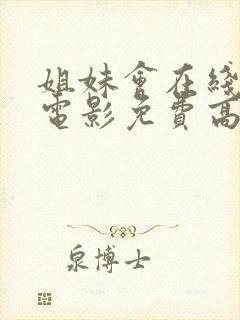 姐妹會在綫
電影免費高
泉博士